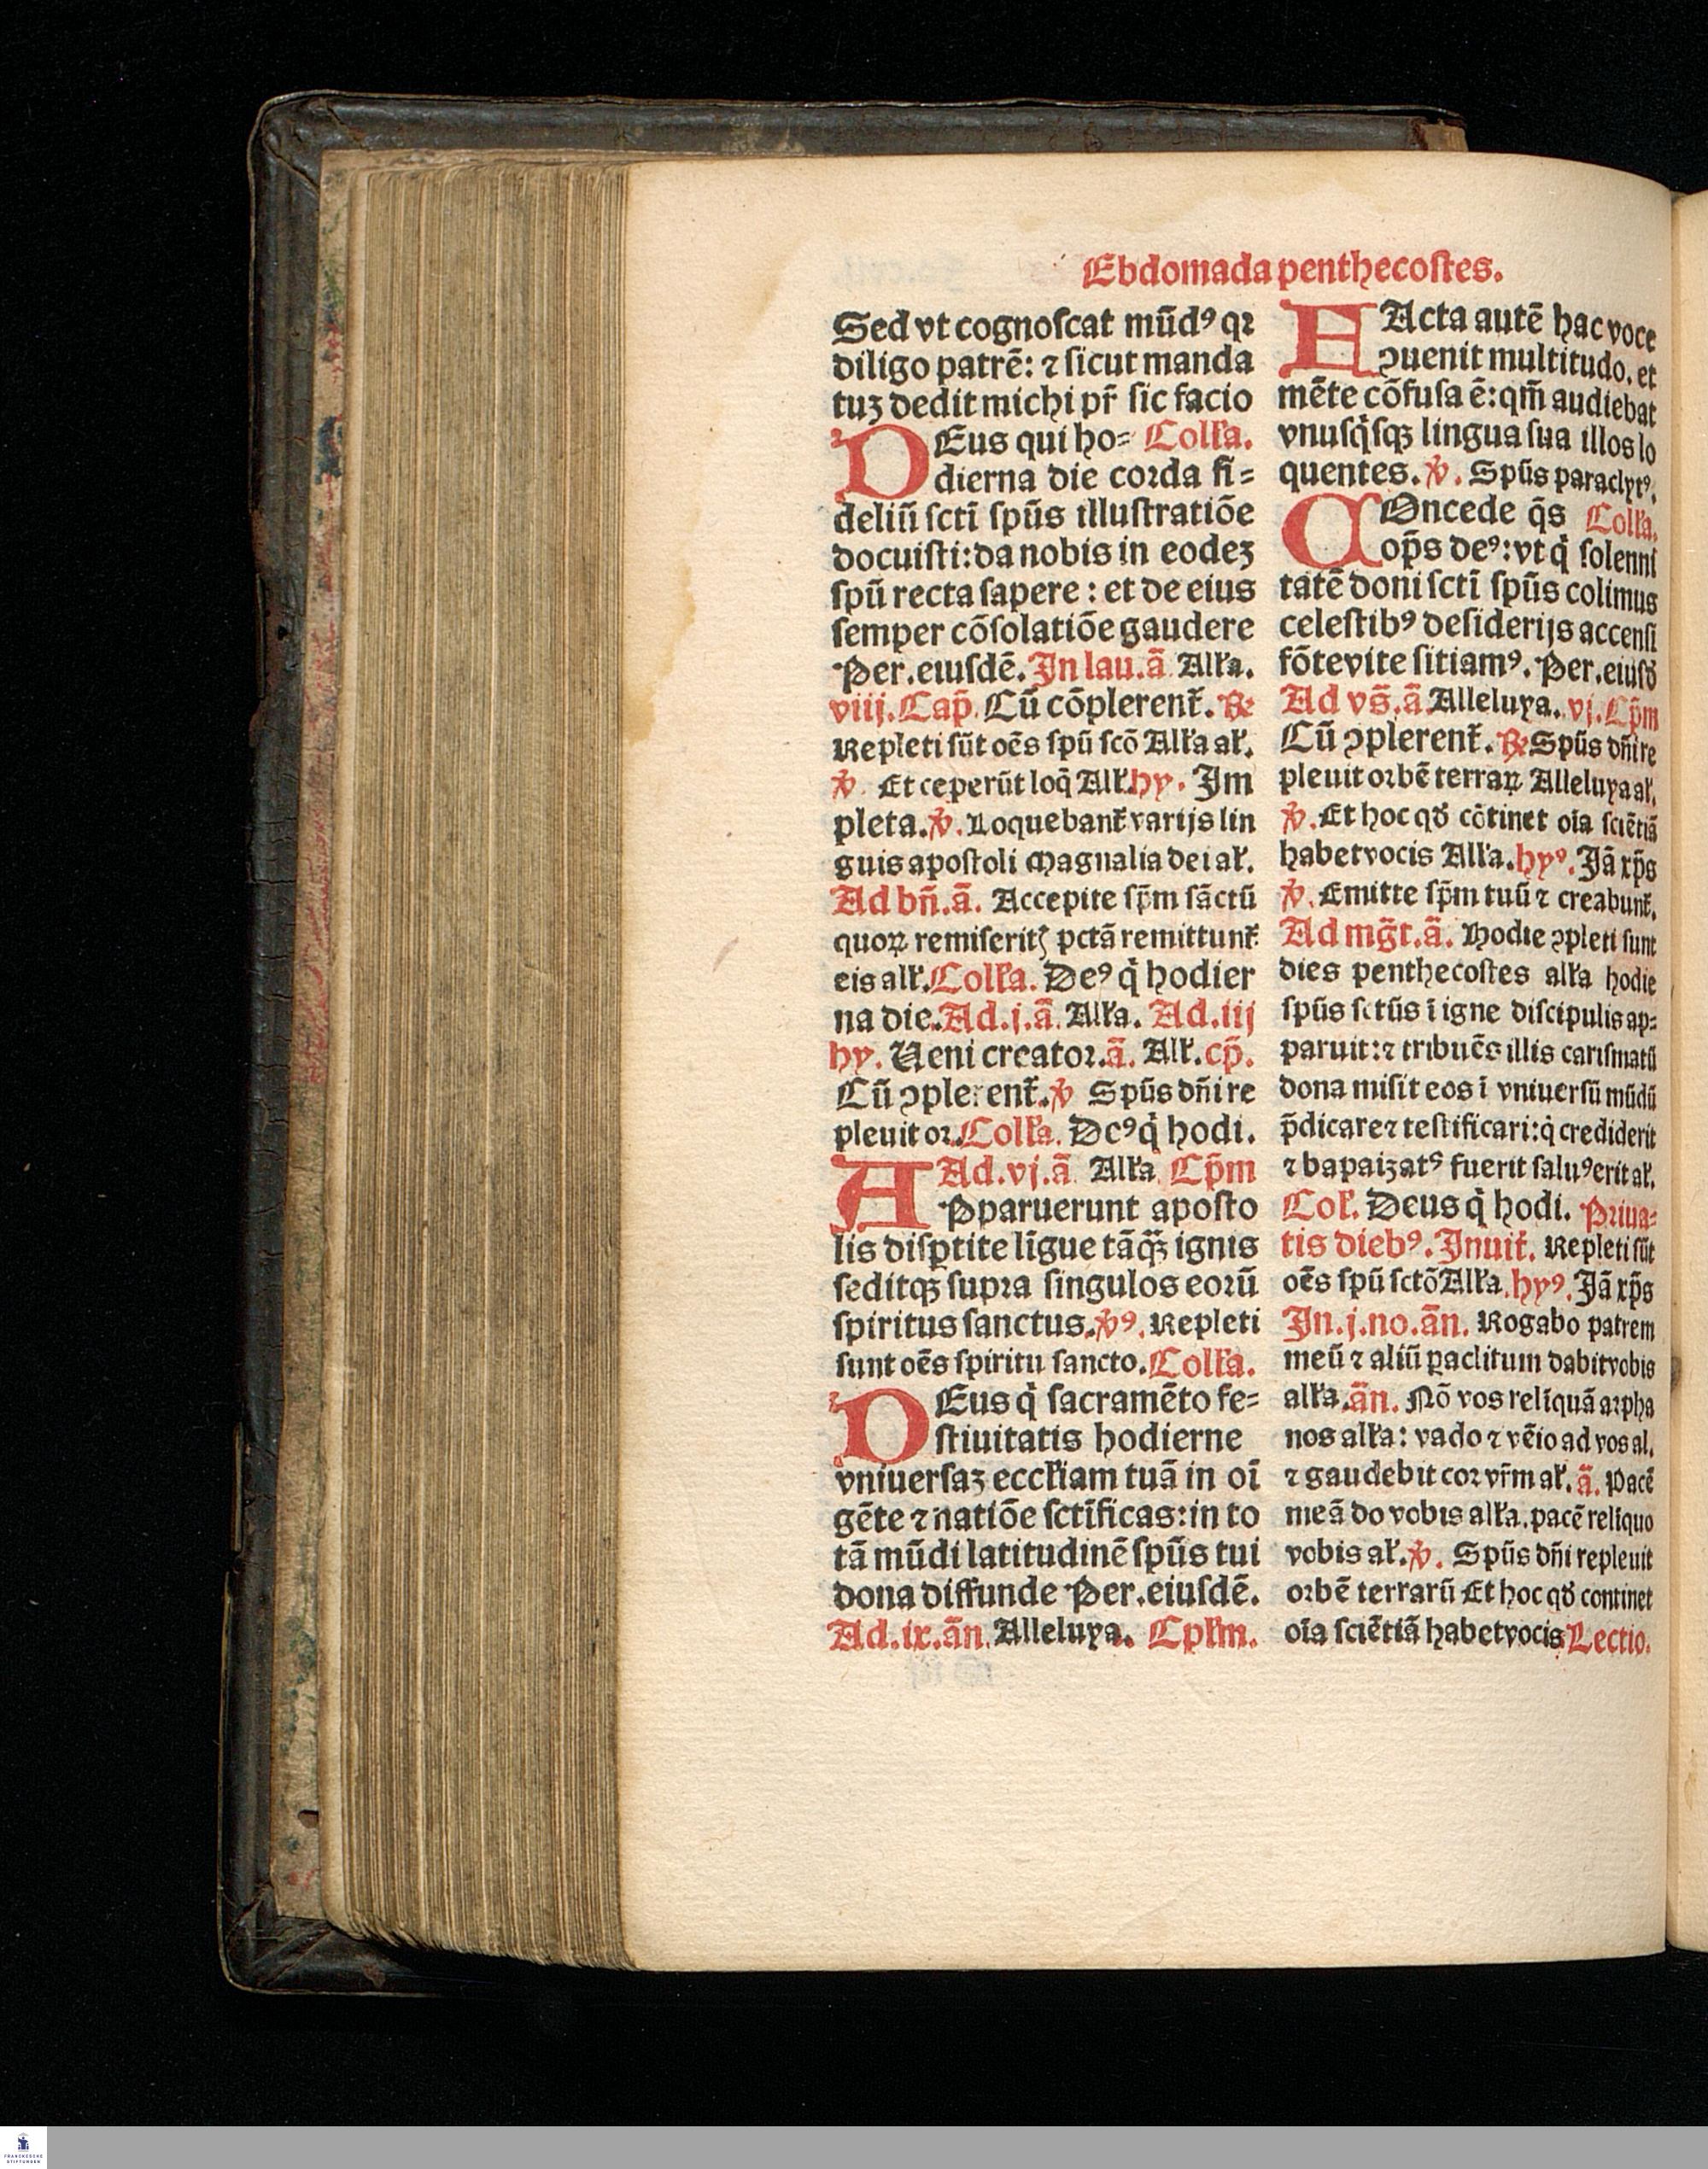 Ebdomada penthecoſtes.
Sed vt cognoſcat mũdꝰ qꝛ
diligo patrẽ: ⁊ ſicut manda
tuʒ dedit michi pr̃ ſic facio
DEus qui ho⸗ Coll'a.
dierna die coꝛda fi⸗
deliũ ſctĩ ſpũs illuſtratiõe
docuiſti: da nobis in eodeʒ
ſpũ recta ſapere : et de eius
ſemper cõſolatiõe gaudere
Per.eiuſdẽ. In lau.ã All'a.
viij. Cap̃. Cũ cõplerent᷑. ℞
Repleti ſũt oẽs ſpũ ſcõ All'a al'.
℣. Et ceperũt loq̃ All'. hy. Im
pleta. ℣. Loquebant᷑ varijs lin
guis apoſtoli Magnalia dei al'.
Ad bñ.ã. Accepite ſp̃m ſãctũ
quoꝝ remiſeritꝭ pctã remittunt᷑
eis all'. Coll'a. Deꝰ q̇ hodier
na die. Ad.j.ã. All'a. Ad.iij
hy. Ueni creatoꝛ.ã. All'. cp̃.
Cũ ꝯplerent᷑. ℣ Spũs dñi re
pleuit oꝛ. Coll'a. Deꝰ q̇ hodi.
Ad.vj.ã All'a Cp̃m
APparuerunt apoſto
lis diſꝑtite lĩgue tãq̃ʒ ignis
ſeditqʒ ſupꝛa ſingulos eoꝛũ
ſpiritus ſanctus. ℣ꝰ. Repleti
ſunt oẽs ſpiritu ſancto. Coll'a.
DEus q̇ ſacramẽto fe⸗
ſtiuitatis hodierne
vniuerſaʒ eccl'iam tuã in oĩ
gẽte ⁊ natiõe ſctĩficas: in to
tã mũdi latitudinẽ ſpũs tui
dona diffunde Per.eiuſdẽ.
Ad.ix.ãn. Alleluya. Cpl'm.
FActa autẽ hac voce
ꝯuenit multitudo. et
mẽte cõfuſa ẽ: qm̃ audiebat
vnuſq̇ſqʒ lingua ſua illos lo
quentes. ℣. Spũs paraclytꝰ.
COncede q̃s Coll'a.
op̃s deꝰ: vt q̇ ſolenni
tatẽ doni ſctĩ ſpũs colimus
celeſtibꝰ deſiderijs accenſi
fõte vite ſitiamꝰ. Per.eiuſd̃
Ad vs̃.ã Alleluya. vj. Cp̃m
Cũ ꝯplerent᷑. ℞ Spũs dñi re
pleuit oꝛbẽ terraꝝ Alleluya al'.
℣. Et hoc qd̃ cõtinet oĩa ſciẽtiã
habet vocis All'a. hyꝰ. Jã xp̃s
℣. Emitte ſp̃m tuũ ⁊ creabunt᷑.
Ad mg̃t.ã. Hodie ꝯpleti ſunt
dies penthecoſtes all'a hodie
ſpũs ſctũs ĩ igne diſcipulis ap⸗
paruit: ⁊ tribuẽs illis cariſmatũ
dona miſit eos ĩ vniuerſũ mũdũ
p̃dicare ⁊ teſtificari: q̇ crediderit
⁊ bapaiʒatꝰ fuerit ſaluꝰ erit al'.
Col'. Deus q̇ hodi. Pꝛiua⸗
tis diebꝰ. Inuit᷑. Repleti ſũt
oẽs ſpũ ſctõ All'a. hyꝰ. Jã xp̃s
In.j.no.ãn. Rogabo patrem
meũ ⁊ aliũ ꝑaclitum dabit vobis
all'a. ãn. Nõ vos relĩquã aꝛpha
nos all'a: vado ⁊ vẽio ad vos al.
⁊ gaudebit coꝛ vr̃m al'. ã. Pacẽ
meã do vobis all'a. pacẽ relĩquo
vobis al'. ℣. Spũs dñi repleuit
oꝛbẽ terrarũ Et hoc qd̃ continet
oĩa ſciẽtiã habet vocis Lectio.
FRANCKESCHE
STIFTUNGEN